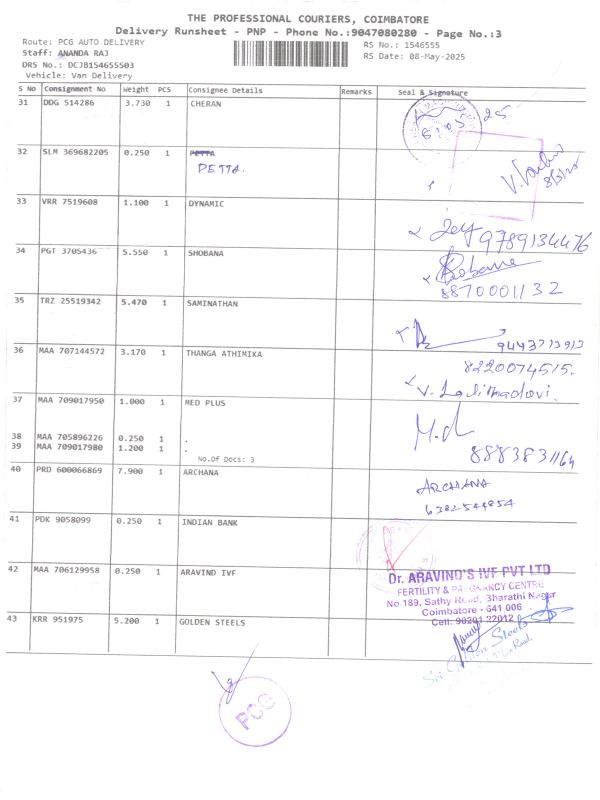 THE PROFESSIONAL COURIERS, COIMBATORE
Delivery Runsheet - PNP - Phone No.:9047080280 - Page No.:3
Route: PCG AUTO DELIVERY
Staff: ANANDA RAJ
DRS No.: DCJB154655503
Vehicle: Van Delivery
RS No.: 1546555
RS Date: 08-May-2025
S No Consignment No Weight PCS Consignee Details Remarks Seal & Signature
31 DDG 514286 3.730 1 CHERAN
32 SLM 369682205 0.250 1 PETTA
PETTA.
8/5/25
33 VRR 7519608 1.100 1 DYNAMIC
9789134476
34 PGT 3705436 5.550 1 SHOBANA
Shobana
8870001132
35 TRZ 25519342 5.470 1 SAMINATHAN
9443713913
36 MAA 707144572 3.170 1 THANGA ATHIMIKA
8220074515.
37 MAA 709017950 1.000 1 MED PLUS
38 MAA 705896226 0.250 1 .
39 MAA 709017980 1.200 1 .
No.Of Docs: 3
8883831164
40 PRD 600066869 7.900 1 ARCHANA
ARCHANA
6382544854
41 PDK 9058099 0.250 1 INDIAN BANK
42 MAA 706129958 0.250 1 ARAVIND IVF
Dr. ARAVIND'S IVF PVT LTD
FERTILITY & PREGNANCY CENTRE
No.189, Sathy Road, Bharathi Nagar
Coimbatore - 641 006
Cell: 90201 22012
43 KRR 951975 5.200 1 GOLDEN STEELS
PCG